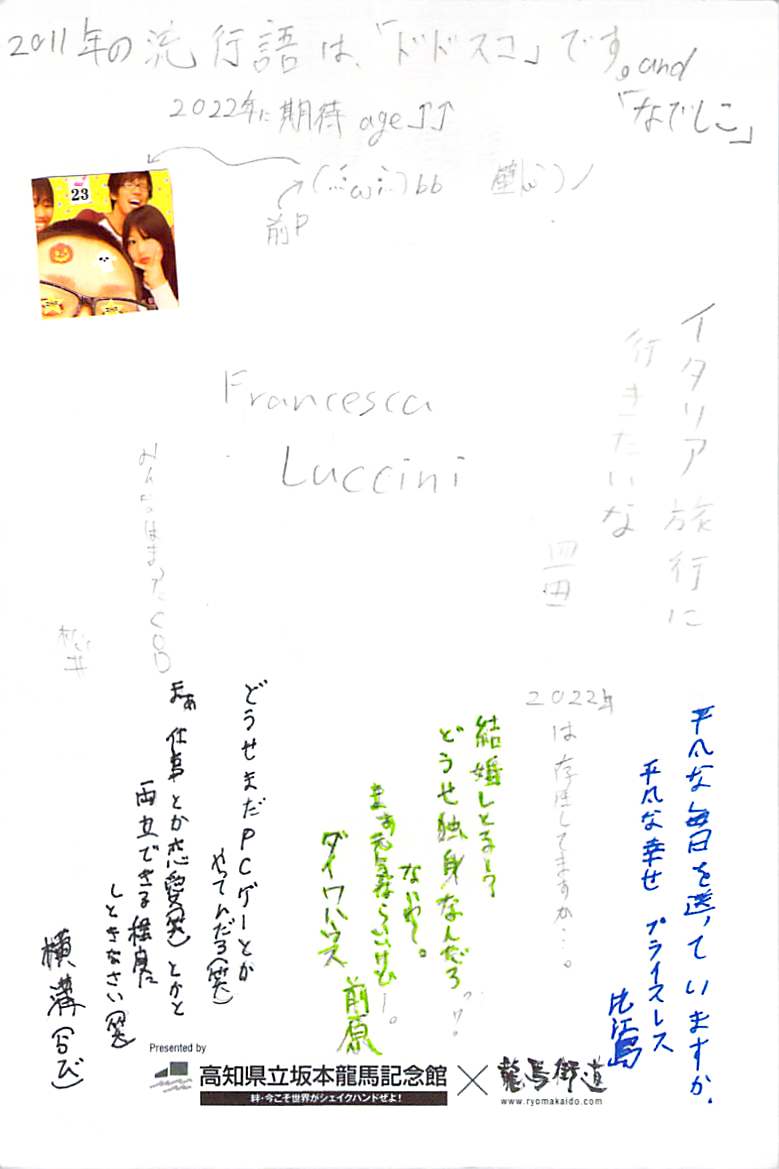 2011年の流行語は、「ドドスコ」です。and
「なでしこ」
2022年に期待age↑↑
23
前P
Francesca
Luccini
イタリア旅行に
行きたいな
2022年
は存在してますか…。
平凡な毎日を送っていますか。
平凡な幸せ プライスレス
比江島
結婚しとるー?
どうせ独身なんだろ
ないわ〜。
まぁ元気ならいいけどー。
ダイワハウス 前原
どうせまだPCゲーとか
やってんだろ(笑)
まぁ 仕事とか恋愛(笑)とかと
両立できる程度に
しときなさい(笑)
横溝(らび)
Presented by
高知県立坂本龍馬記念館×龍馬街道
絆・今こそ世界がシェイクハンドぜよ!
www.ryomakaido.com